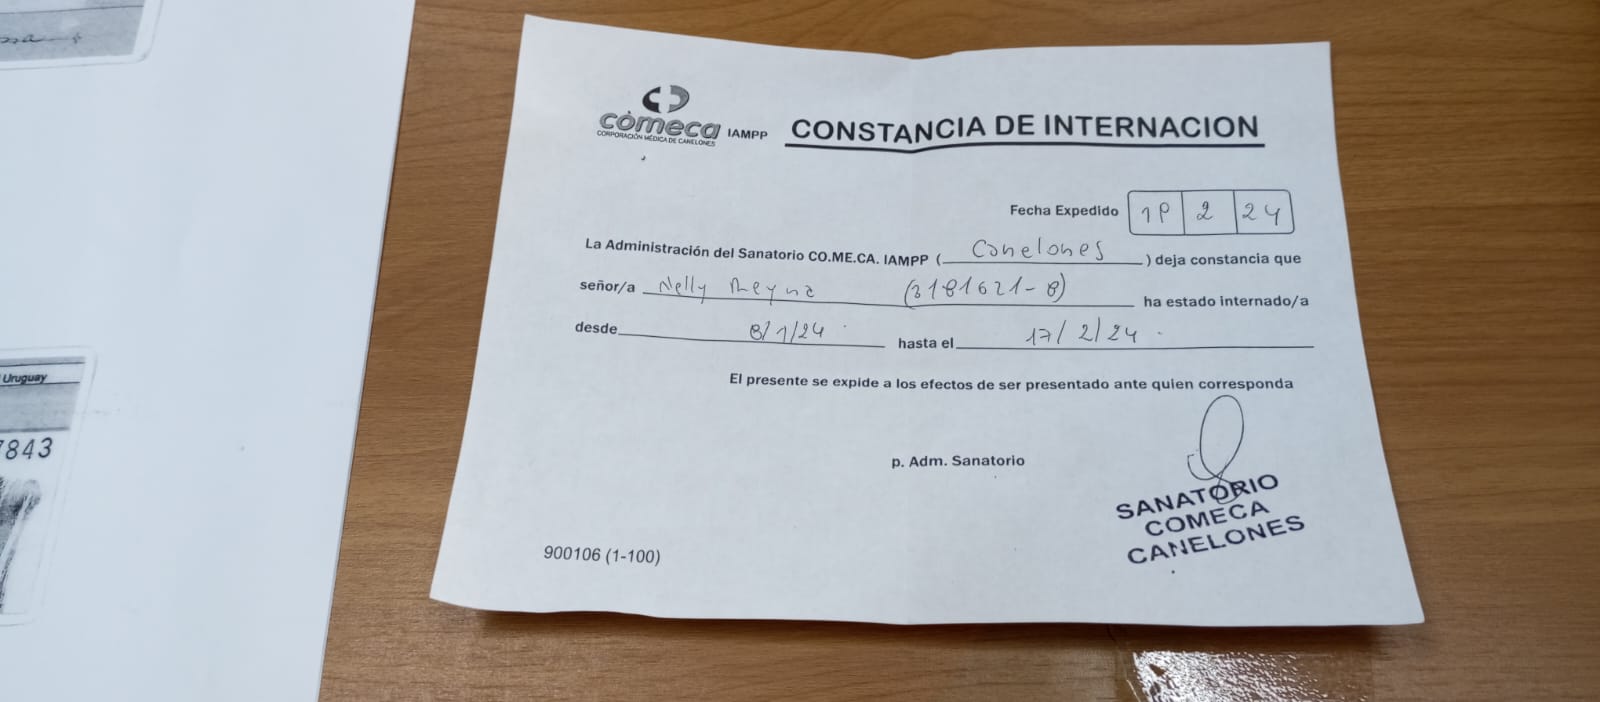 Uruguay
7843
comeca IAMPP
CORPORACIÓN MÉDICA DE CANELONES
CONSTANCIA DE INTERNACION
Fecha Expedido 18 2 24
La Administración del Sanatorio CO.ME.CA. IAMPP ( Canelones ) deja constancia que
señor/a Nelly Reyna (3181621-8) ha estado internado/a
desde 8/1/24 hasta el 17/2/24
El presente se expide a los efectos de ser presentado ante quien corresponda
p. Adm. Sanatorio
SANATORIO
COMECA
CANELONES
900106 (1-100)